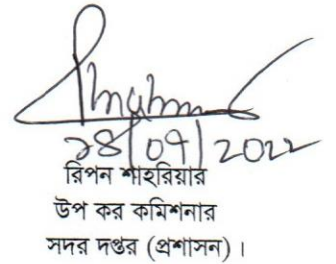 ২৪/০৭/২০২২
রিপন শাহরিয়ার
উপ কর কমিশনার
সদর দপ্তর (প্রশাসন)।